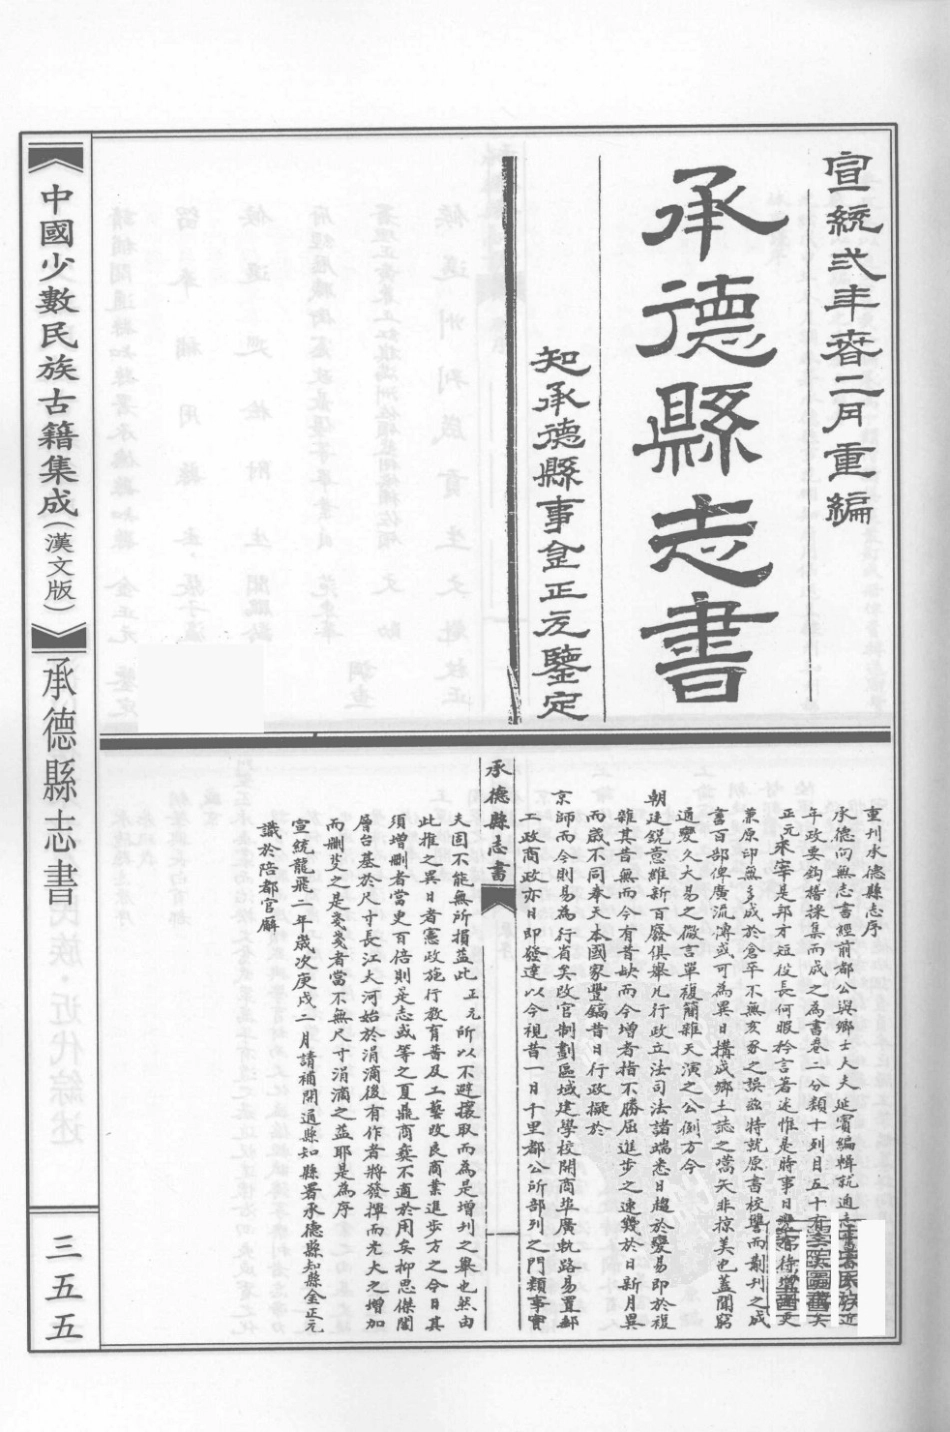 宣統弍年春二月重編
承德縣志書
知承德縣事金正元鑒定
重刊承德縣志序
承德向無志書經前都公與鄉士大夫延賓編輯就通志
年政要鈎稽採集而成之為書卷二分類十列目五十有
正元來宰是邦才短從長何暇矜言著述惟是時事日
兼原印無多成於倉卒不無亥豕之誤茲將就原書校讐而剞刊之成
書百部俾廣流傳或可為異日構成鄉土誌之嚆矢非掠美也蓋聞窮
通變久大易之微言單複簡雜天演之公例方今
朝廷銳意維新百廢俱舉凡行政立法司法諸端悉日趨於變易即於複
雜其昔無而今有昔缺而今增者指不勝屈進步之速幾於日新月異
而歲不同奉天本國家豐鎬昔日行政擬於
京師而今則易為行省矣改官制劃區域建學校開商埠廣軌路易置郵
工政商政亦日即發達以今視昔一日千里都公所部列之門類事實
承德縣志書
夫固不能無所損益此正元所以不避攘取而為是增刊之舉也然由
此推之異日者憲政施行教育普及工藝改良商業進步方之今日其
須增刪者當更百倍則是志或等之夏鼎商彝不適於用矣抑思傑閣
層台基於尺寸長江大河始於涓滴後有作者將發揮而光大之增加
而刪芟之是戔戔者當不無尺寸涓滴之益耶是為序
宣統龍飛二年歲次庚戌二月請補開通縣知縣署承德縣知縣金正元
識於陪都官廨
中國少數民族古籍集成(漢文版)
承德縣志書
三五五